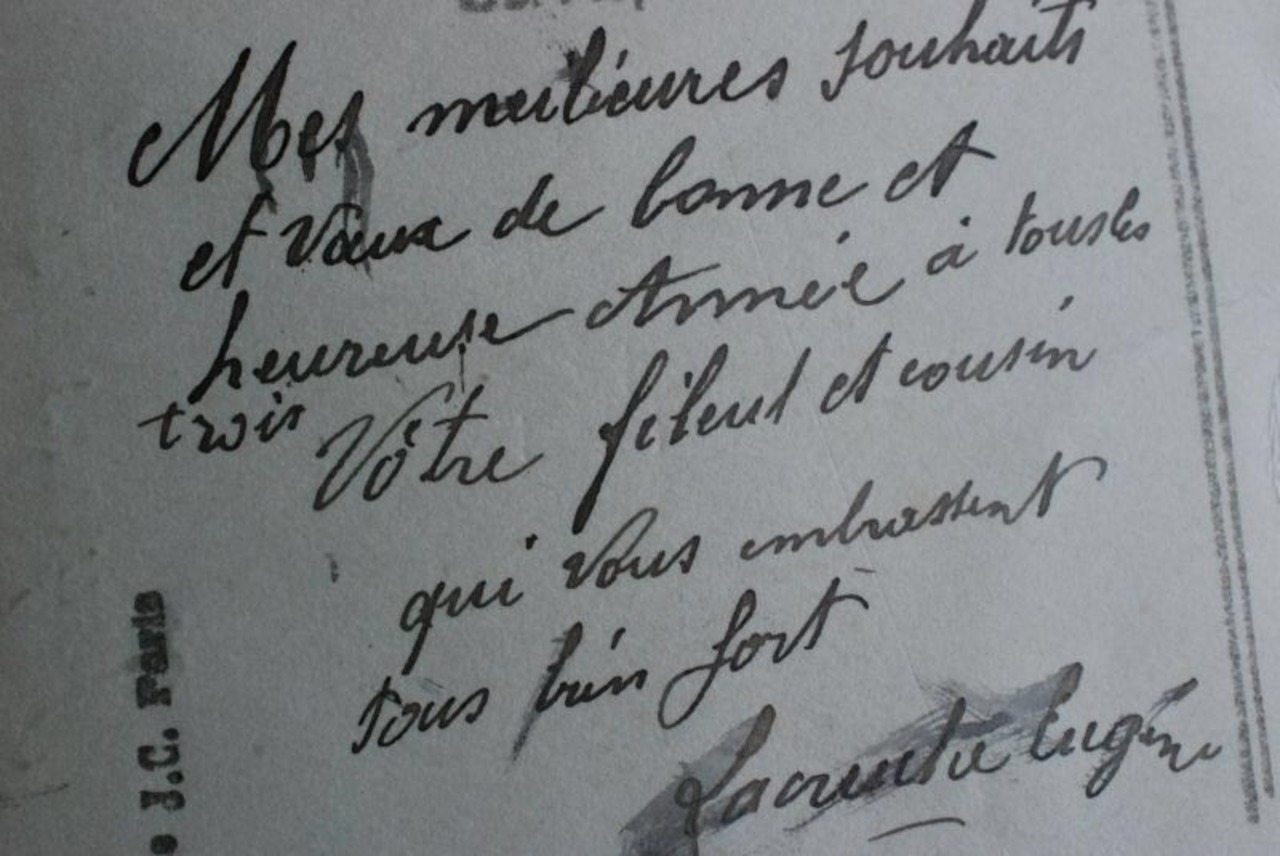 Mes meilieures souhaits
et Vœux de bonne et
heureuse Année à tous les
trois Vôtre fileul et cousin
qui vous embrassent
tous bien fort
Eugène
J.C. Paris